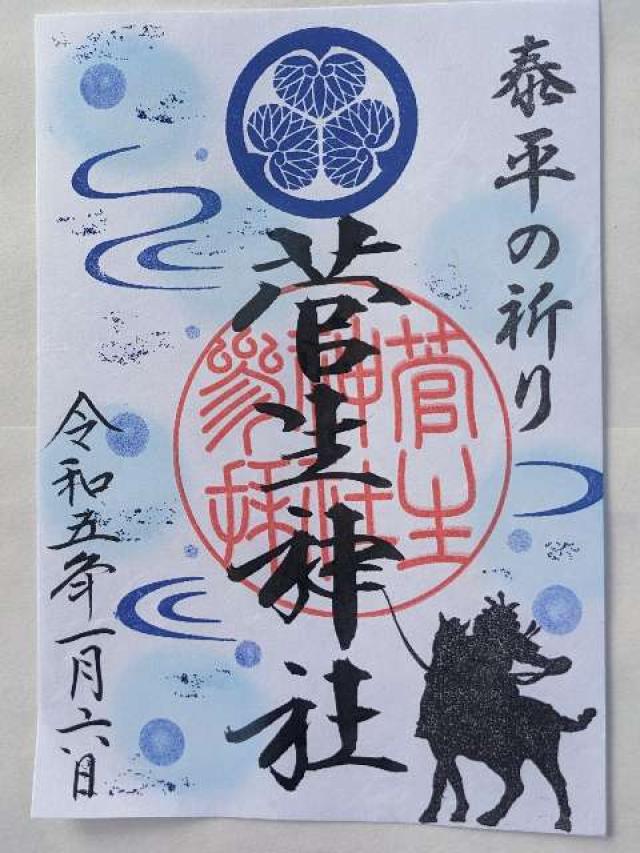 泰平の祈り
菅生神社
菅生
神社
参拝
令和五年一月六日